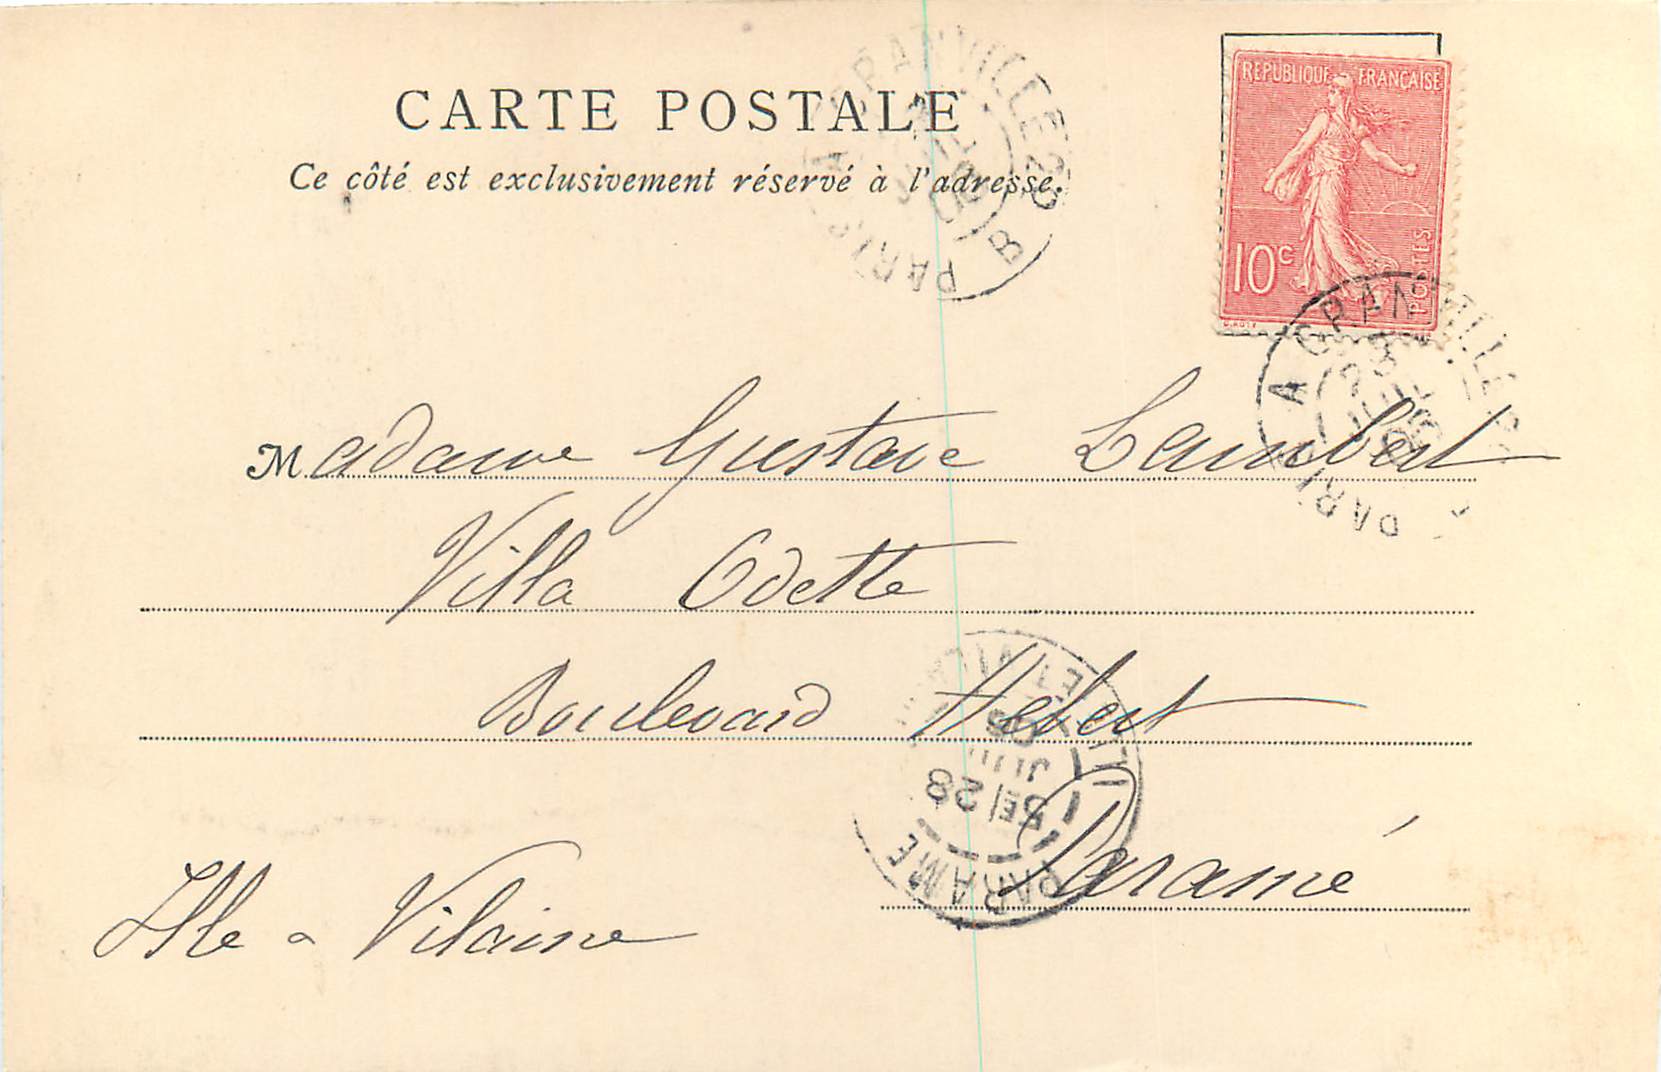 CARTE POSTALE
Ce côté est exclusivement réservé à l'adresse.
REPUBLIQUE FRANÇAISE
10c
POSTES
PARIS A GRANVILLE
PARIS A GRANVILLE B
Madame Gustave Lambert
Villa Odette
Boulevard Hebert
Paramé
Ille - Vilaine
PARAME
2E/28
JUIL
ILLE ET VILAINE